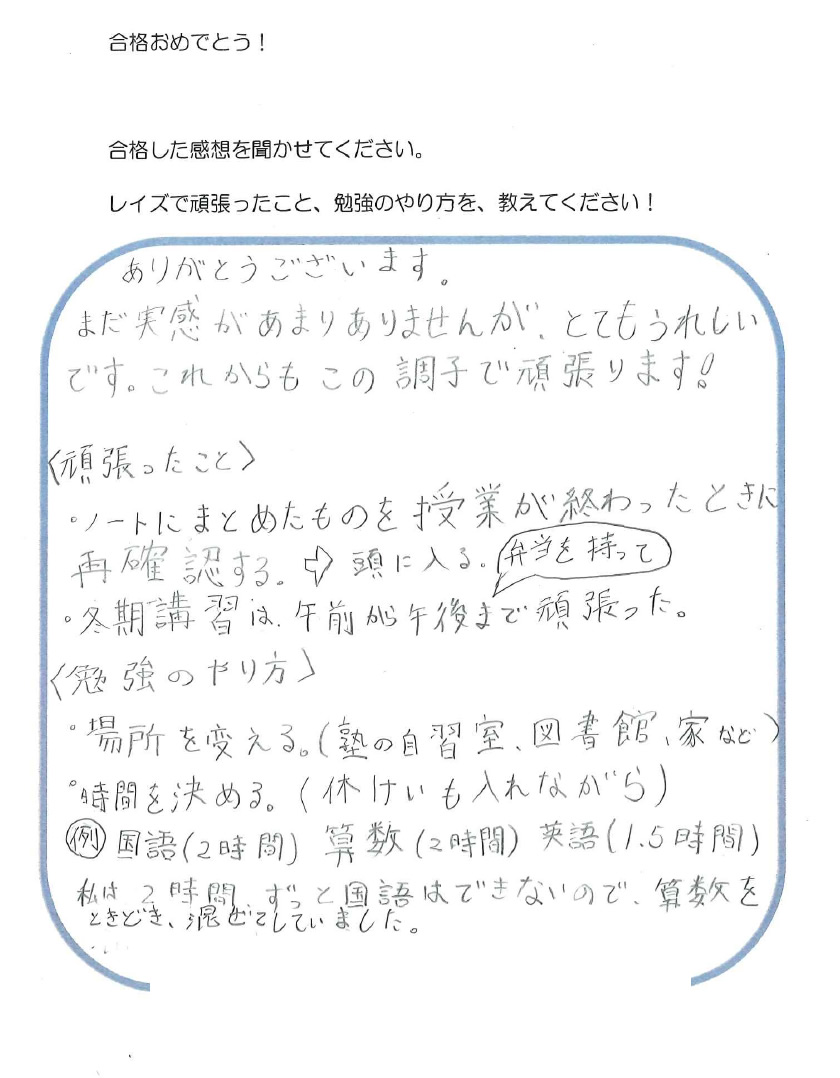 合格おめでとう！
合格した感想を聞かせてください。
レイズで頑張ったこと、勉強のやり方を、教えてください！
ありがとうございます。
まだ実感があまりありませんが、とてもうれしい
です。これからもこの調子で頑張ります！
〈頑張ったこと〉
・ノートにまとめたものを授業が終わったときに
再確認する。⇨ 頭に入る。
弁当を持って
・冬期講習は、午前から午後まで頑張った。
〈勉強のやり方〉
・場所を変える。(塾の自習室、図書館、家など)
・時間を決める。(休けいも入れながら)
例 国語(2時間) 算数(2時間) 英語(1.5時間)
私は2時間、ずっと国語はできないので、算数を
ときどき、混ぜてしていました。